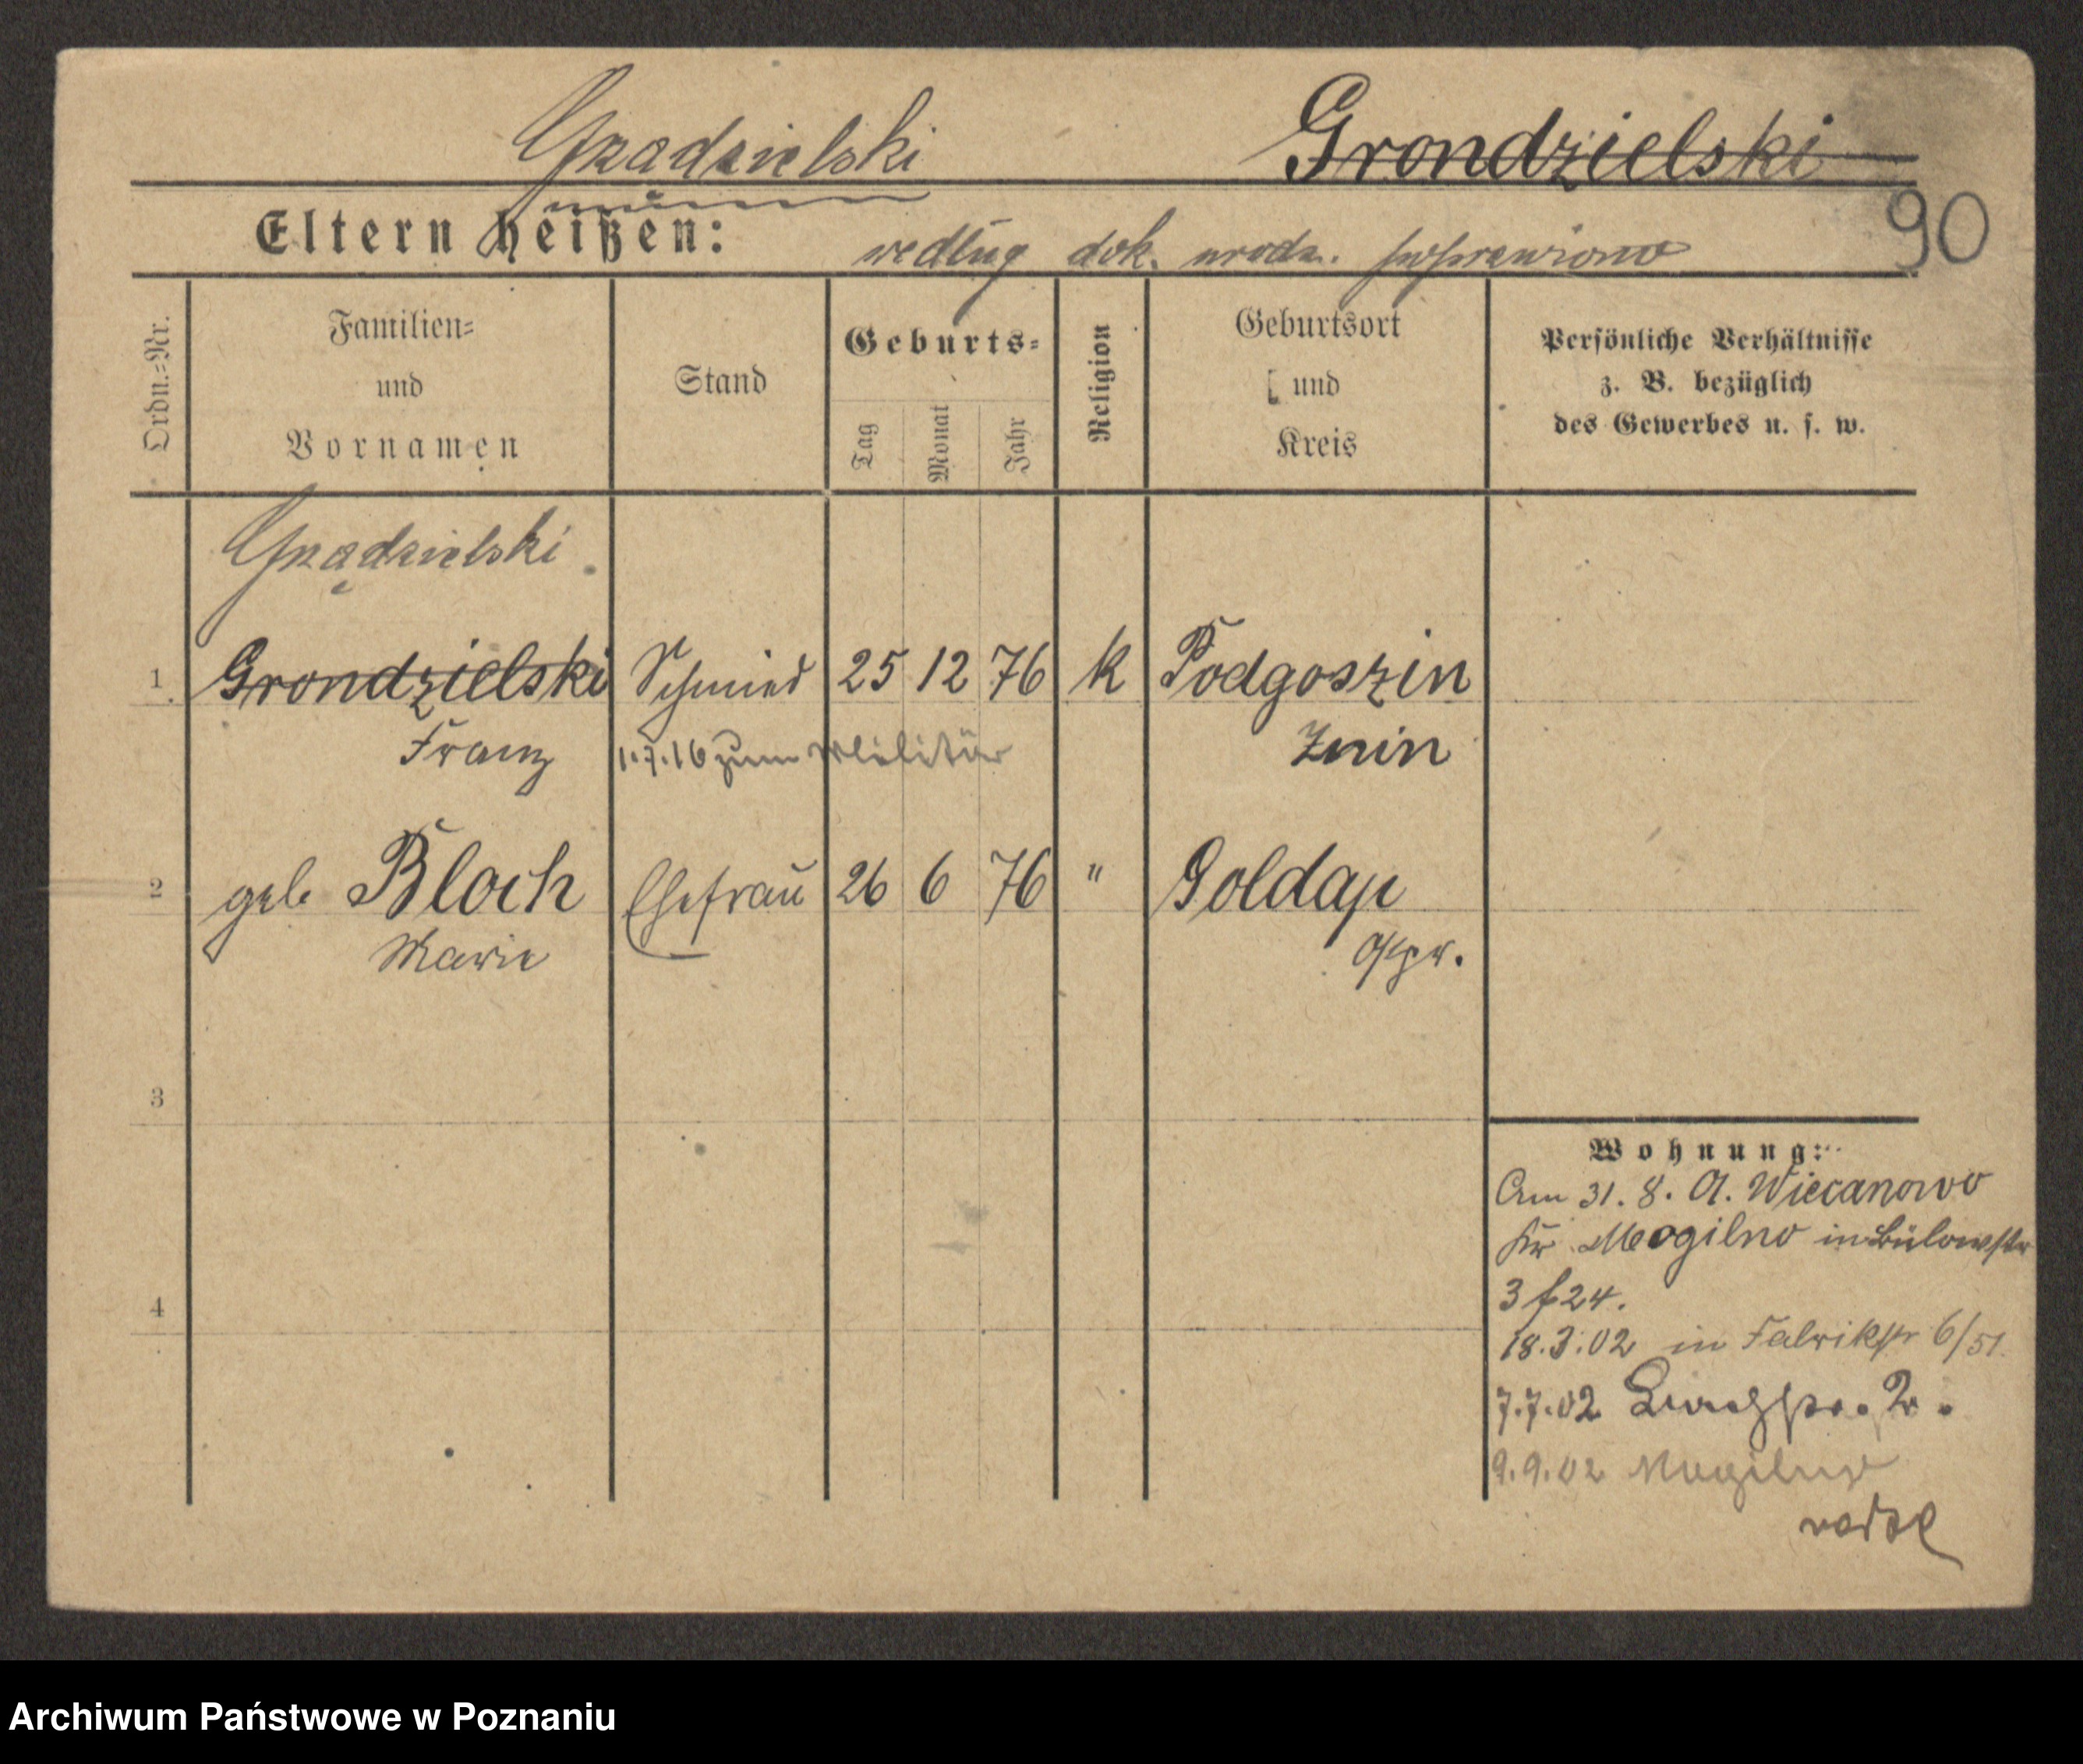 Grządzielski Grondzielski
Eltern heißen: według dok. urodz. poprawiono 90
Ordn.-Nr. Familien- und Vornamen Stand Geburts- Tag Monat Jahr Religion Geburtsort und Kreis Persönliche Verhältnisse z. B. bezüglich des Gewerbes u. s. w.
Grządzielski
1 Grondzielski Schmied 25 12 76 k Podgoszin
Franz 1.7.16 zum Militär Znin
2 geb Bloch Ehefrau 26 6 76 " Goldap
Marie Ostpr.
3
4
Wohnung:
Am 31. 8. 01. Wiecanowo
Kr Mogilno in Bülowstr
3 f 24.
18.3.02 in Fabrikstr 6/51.
7.7.02 2.
9.9.02 Mogilno
Archiwum Państwowe w Poznaniu